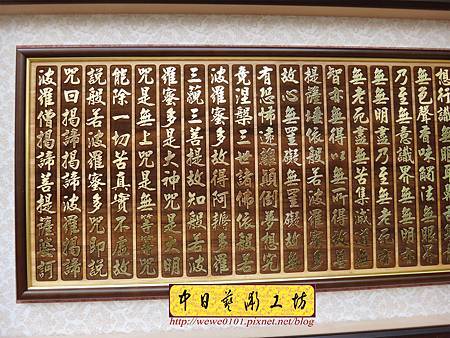 無色聲香味觸法無眼界
乃至無意識界無無明亦
無無明盡乃至無老死亦
無老死盡無苦集滅道無
智亦無得以無所得故菩
提薩埵依般若波羅蜜多
故心無罣礙無罣礙故無
有恐怖遠離顛倒夢想究
竟涅槃三世諸佛依般若
波羅蜜多故得阿耨多羅
三藐三菩提故知般若波
羅蜜多是大神咒是大明
咒是無上咒是無等等咒
能除一切苦真實不虛故
說般若波羅蜜多咒即說
咒曰揭諦揭諦波羅揭諦
波羅僧揭諦菩提薩婆訶
中日藝彫工坊
http://wewe0101.pixnet.net/blog